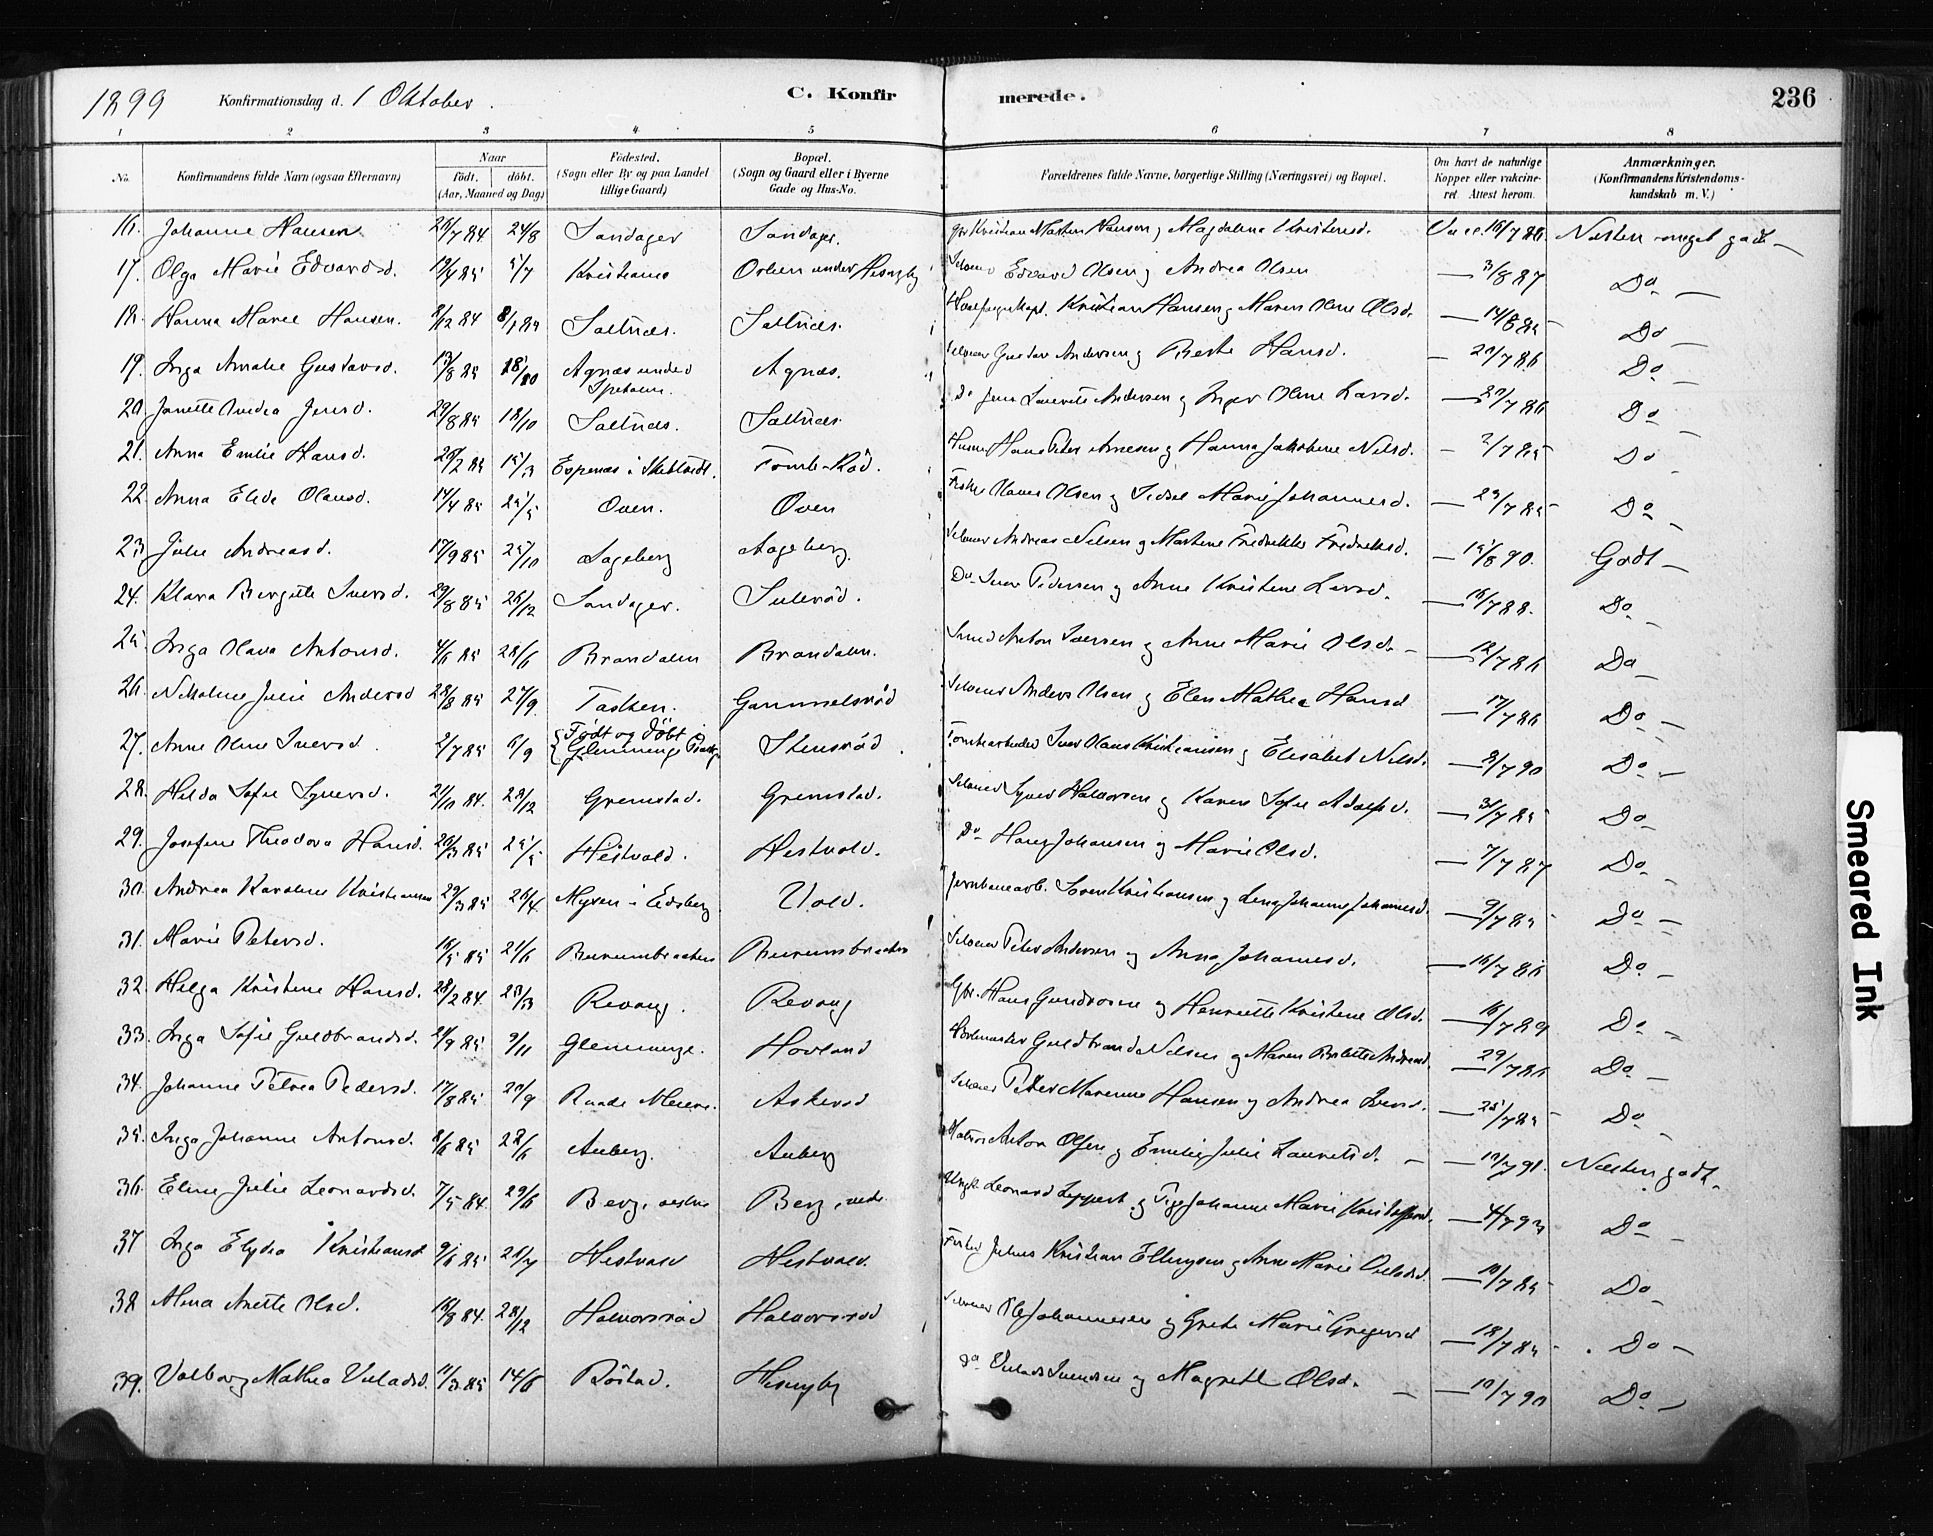 1899 Konfirmationsdag d. 1 Oktober. C. Konfir merede. 236
1 2 3 4 5 6 7 8
No. Konfirmandens fulde Navn (ogsaa Efternavn) Naar födt. döbt. (Aar, Maaned og Dag) Födested. (Sogn eller By og paa Landet tillige Gaard) Bopæl. (Sogn og Gaard eller i Byerne Gade og Hus-No.) Forældrenes fulde Navne, borgerlige Stilling (Næringsvei) og Bopæl. Om havt de naturlige Kopper eller vakcineret. Attest herom. Anmærkninger. (Konfirmandens Kristendomskundskab m. V.)
16. Johanne Hansen 26/7 84 24/8 Sandager Sandager Gbr Kristian Martin Hansen og Magdalena Kristensd. Vacc. 16/7 86. Næsten meget godt
17. Olga Marie Edvardsd. 5/7 Kristiania under Huseby Edvard Olsen og Andrea Olsen 3/8 87 Do
18. Hanna Marie Hansen. 84 Saltnæs. Saltnæs. Kristian Hansen og Maren Oline Olsd. 14/8 85 Do
19. Inga Amalie Gustavsd. 13/8 85 Agnæs under Agnæs. Selveier Gustav Andersen og Berte Hansd. 20/7 86 Do
20. Janette Andrea Jensd. 29/8 85 18/10 Saltnæs. Saltnæs. Do Jens Laurits Andersen og Inger Oline Larsd. 20/7 86 Do
21. Anna Emilie Hansd. 15/3 Espenæs i Tomb-Rød. Hans Peter Arnesen og Hanna Jakobine Nilsd. 2/7 85 Do
22. Anna Elida Olausd. 14/4 85 25/5 Oven. Oven Fisker Olaves Olsen og Sidsel Marie Johannesd. 23/7 85 Do
23. Julie Andreasd. 17/9 85 25/10 Aageberg Selveier Andreas Nilsen og Martine Fredrikke Fredriksd. 15/8 90. Godt
24. Klara Bergitte Iversd. 29/8 85 26/12 Sandager. Sulerød. Do Iver Pedersen og Anne Kristine Larsd. 16/7 88. Do
25. Inga Olava Antonsd. 4/6 85 28/6 Brandalen Brandalen. Smed Anton Iversen og Anne Marie Olsd. 12/7 86 Do
26. Nikoline Julie Andersd 28/8 85 27/9 Tasken. Gammelsrød Selveier Anders Olsen og Elen Mathea Hansd 17/7 86 Do
27. Anne Oline Iversd. 2/7 85 6/9 Født og døbt Glemminge Stensrød Iver Olaus Kristiansen og Elisabet Nilsd. 8/7 90 Do
28. Hilda Sofie Syversd. 21/10 84. 28/12 Gremstad. Gremstad. Selveier Syver Halvorsen og Karen Sofie Adolfsd. 31/7 85 Do
29. Josefine Theodora Hansd. 20/3 85 25/5 Hestvold. Hestvold. Do Hans Johansen og Marie Olsd. 7/7 87 Do
30. Andrea Karoline Kristiansen 29/3 85 26/4 Mysen i Eidsberg Vold. Jernbanearb. Søren Kristiansen og Lina Johanne Johannesd. 9/7 85 Do
31. Marie Petersd. 16/5 85 21/6 Burumbraaten Burumsbraaten Selveier Peter Andersen og Anna Johannesd. 16/7 86 Do
32. Helga Kristine Hansd. 28/2 84. 23/3 Revaug. Revaug Gbr. Hans Gundersen og Henriette Kristine Olsd. 16/7 89 Do
33. Inga Sofie Guldbrandsd. 24/9 85 9/11 Glemminge. Hovland Guldbrand Nilsen og Maren Andreasd. 29/7 86 Do
34. Johanne Petrea Pedersd. 17/8 85 20/9 Raade Meieri Askerød Selveier Peder Marenius Hansen og Andrea Iversd. 25/7 85 Do
35. Inga Johanne Antonsd. 8/6 85 28/6 Auberg. Auberg Anton Olsen og Emilie Julie Lauritsd. 10/7 91. Næsten godt
36. Eline Julie Leonardsd. 7/5 84 29/6 Berg, vestre Berg, vestr Ungk. Leonard Leppert og Pige Johanne Marie Kristoffersd. 4/7 93 Do
37 Inga Elydia Kristiansd 9/6 85 21/7 Hestvold Hestvold. Julius Kristian Ellingsen og Anne Marie 10/7 85 Do
38 Alma Anette Olsd. 16/8 84. 28/12 Halvorsrød Halvorsrød Selveier Ole Johannesen og Grete Marie Gregersd 18/7 85 Do
39. Valborg Mathea 11/3 85 14/6 Röstad. Huseby Do Svendsen og Magrethe Olsd. 10/7 90 Do
Smeared Ink